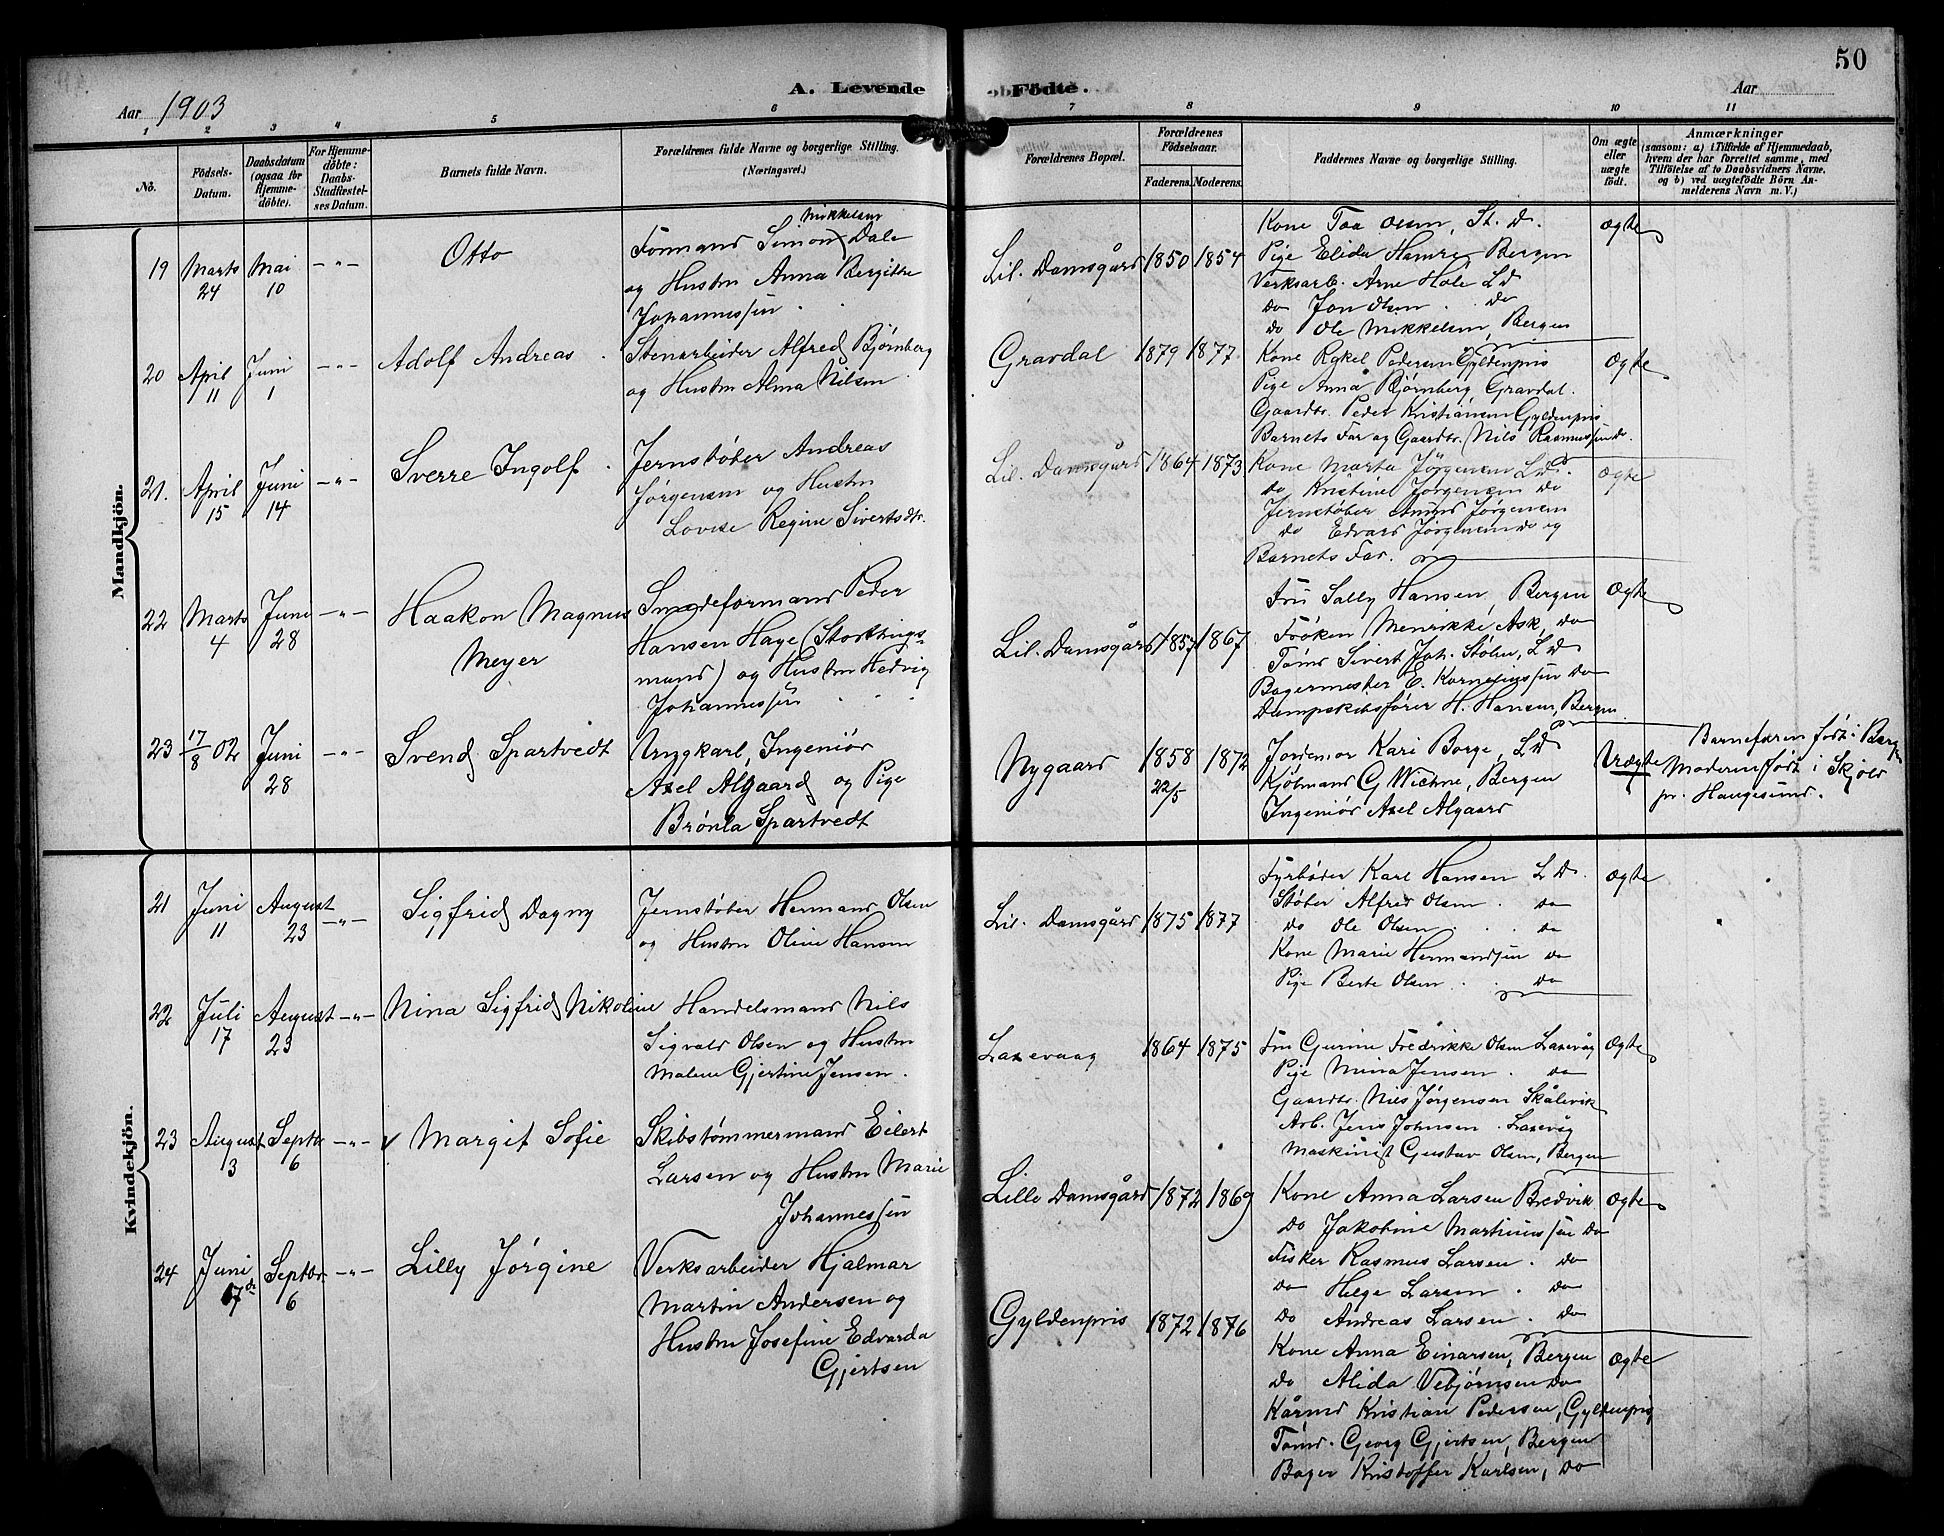 50
A. Levende Födte.
Aar 1903
Aar
1 2 3 4 5 6 7 8 9 10 11
No.
Födsels-Datum.
Daabsdatum (ogsaa for Hjemme-döbte).
For Hjemme-döbte: Daabs-Stadfæstel-ses Datum.
Barnets fulde Navn.
Forældrenes fulde Navne og borgerlige Stilling. (Næringsvei.)
Forældrenes Bopæl.
Forældrenes Födselsaar.
Faderens. Moderens.
Faddernes Navne og borgerlige Stilling.
Om ægte eller uægte födt.
Anmærkninger (saasom: a) i Tilfælde af Hjemmedaab, hvem der har forrettet samme, med Tilföielse af to Daabsvidners Navne, og b) ved uægtefödte Börn An-melderens Navn m. V.)
Mandkjön.
19 Marts 24 Mai 10 -"- Otto
Formand Simon Mikkelsen Dale
og Hustru Anna Bergitte
Johannessen
Lil. Damsgård 1850 1854
Kone Taa Olsen, St. D.
Pige Elida Hamre Bergen
Verksarb. Arne Hole L D
do Jon Olsen do
do Ole Mikkelsen, Bergen
Ægte
20 April 11 Juni 1 -"- Adolf Andreas
Stenarbeider Alfred Bjørnberg
og Hustru Alma Nilsen
Gravdal 1879 1877
Kone Rakel Pedersen Gyldenpris
Pige Anna Bjørnberg Gravdal.
Gaardbr. Peder Kristiansen Gyldenpris
Barnets Far og Gaardbr. Nils Rasmussen do.
Ægte
21. April 15 Juni 14 -"- Sverre Ingolf
Jernstøber Andreas
Jørgensen og Hustru
Lovise Regine Sivertsdtr.
Lil. Damsgård 1864 1873
Kone Marta Jörgensen L D.
do Kristine Jørgensen do
Jernstøber Anders Jørgensen
do Edvard Jørgensen do og
Barnets Far.
Ægte
22 Marts 4 Juni 28 -"- Haakon Magnus
Meyer
Smedeformand Peder
Hansen Hage (Storthings-
mand) og Hustru Hedvig
Johannessen
Lil. Damsgård 1857 1867
Fru Sally Hansen, Bergen
Frøken Henrikke Ask, do
Tømd Sivert Joh. Stølen, L D
Bagermester E. Korneliussen do
Dampskibsfører H. Hansen, Bergen
Ægte
23 17/8 02 Juni 28 -"- Svend Spartvedt
Ungkarl, Ingeniør
Axel Algaard og Pige
Brønla Spartvedt
Nygaard 1858 22/5 1872
Jordemor Kari Borge, L D
Kjøbmand G Wichne, Bergen
Ingeniør Axel Algaard
Uægte
Barnefaren født i Bergen
Moderen født i Skjold
pr. Haugesund.
Kvindekjön.
21 Juni 11 August 23 -"- Sigfrid Dagny
Jernstøber Hermand Olsen
og Hustru Oline Hansen
Lil. Damsgård 1875 1877
Fyrbøder Karl Hansen L D.
Støber Alfred Olsen do
do Ole Olsen do
Kone Marie Hermandsen do
Pige Berte Olsen do
Ægte
22 Juli 17 August 23 -"- Nina Sigfrid Nikoline
Handelsmand Nils
Sigvald Olsen og Hustru
Malene Gjertine Jensen.
Laxevaag 1864 1875
Fru Gurine Fredrikke Olsen Laxevåg
Pige Mina Jensen do
Gaardbr. Nils Jørgensen Skålevik
Arb. Jens Johnsen Laxevåg
Maskinist Gustav Olsen, Bergen
Ægte
23 August 3 Septbr 6 -"- v Margit Sofie
Skibstømmermand Eilert
Larsen og Hustru Marie
Johannessen
Lille Damsgård 1872 1869
Kone Anna Larsen Bredvik
do Jakobine Martinussen do
Fisker Rasmus Larsen do
do Helge Larsen do
do Andreas Larsen do
Ægte
24 Juni 17de Septbr 6 -"- Lilly Jørgine
Verksarbeider Hjalmar
Martin Andersen og
Hustru Josefine Edvarda
Gjertsen
Gyldenpris 1872 1876
Kone Anna Einarsen, Bergen
do Alida Vebjørnsen do
Kårmd Kristian Pedersen, Gyldenpris
Tømd. Georg Gjertsen, Bergen
Bager Kristoffer Karlsen, do
Ægte